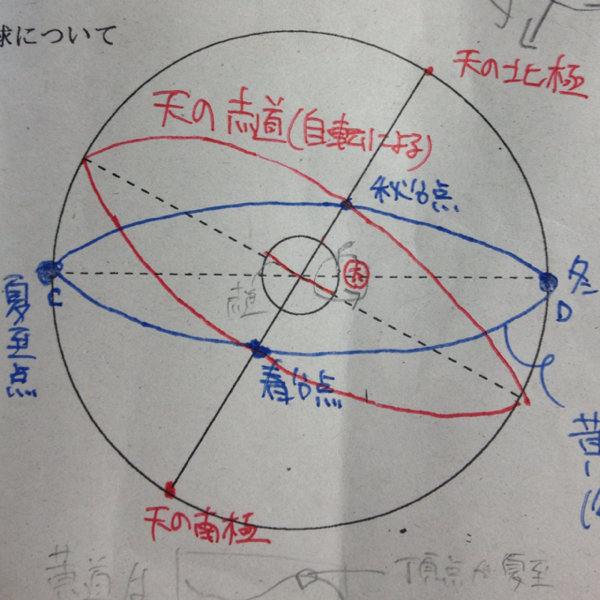 球について
天の北極
天の赤道(自転による)
秋分点
夏至点
C
赤道
冬
D
春分点
黄
天の南極
黄道は
頂点が夏至